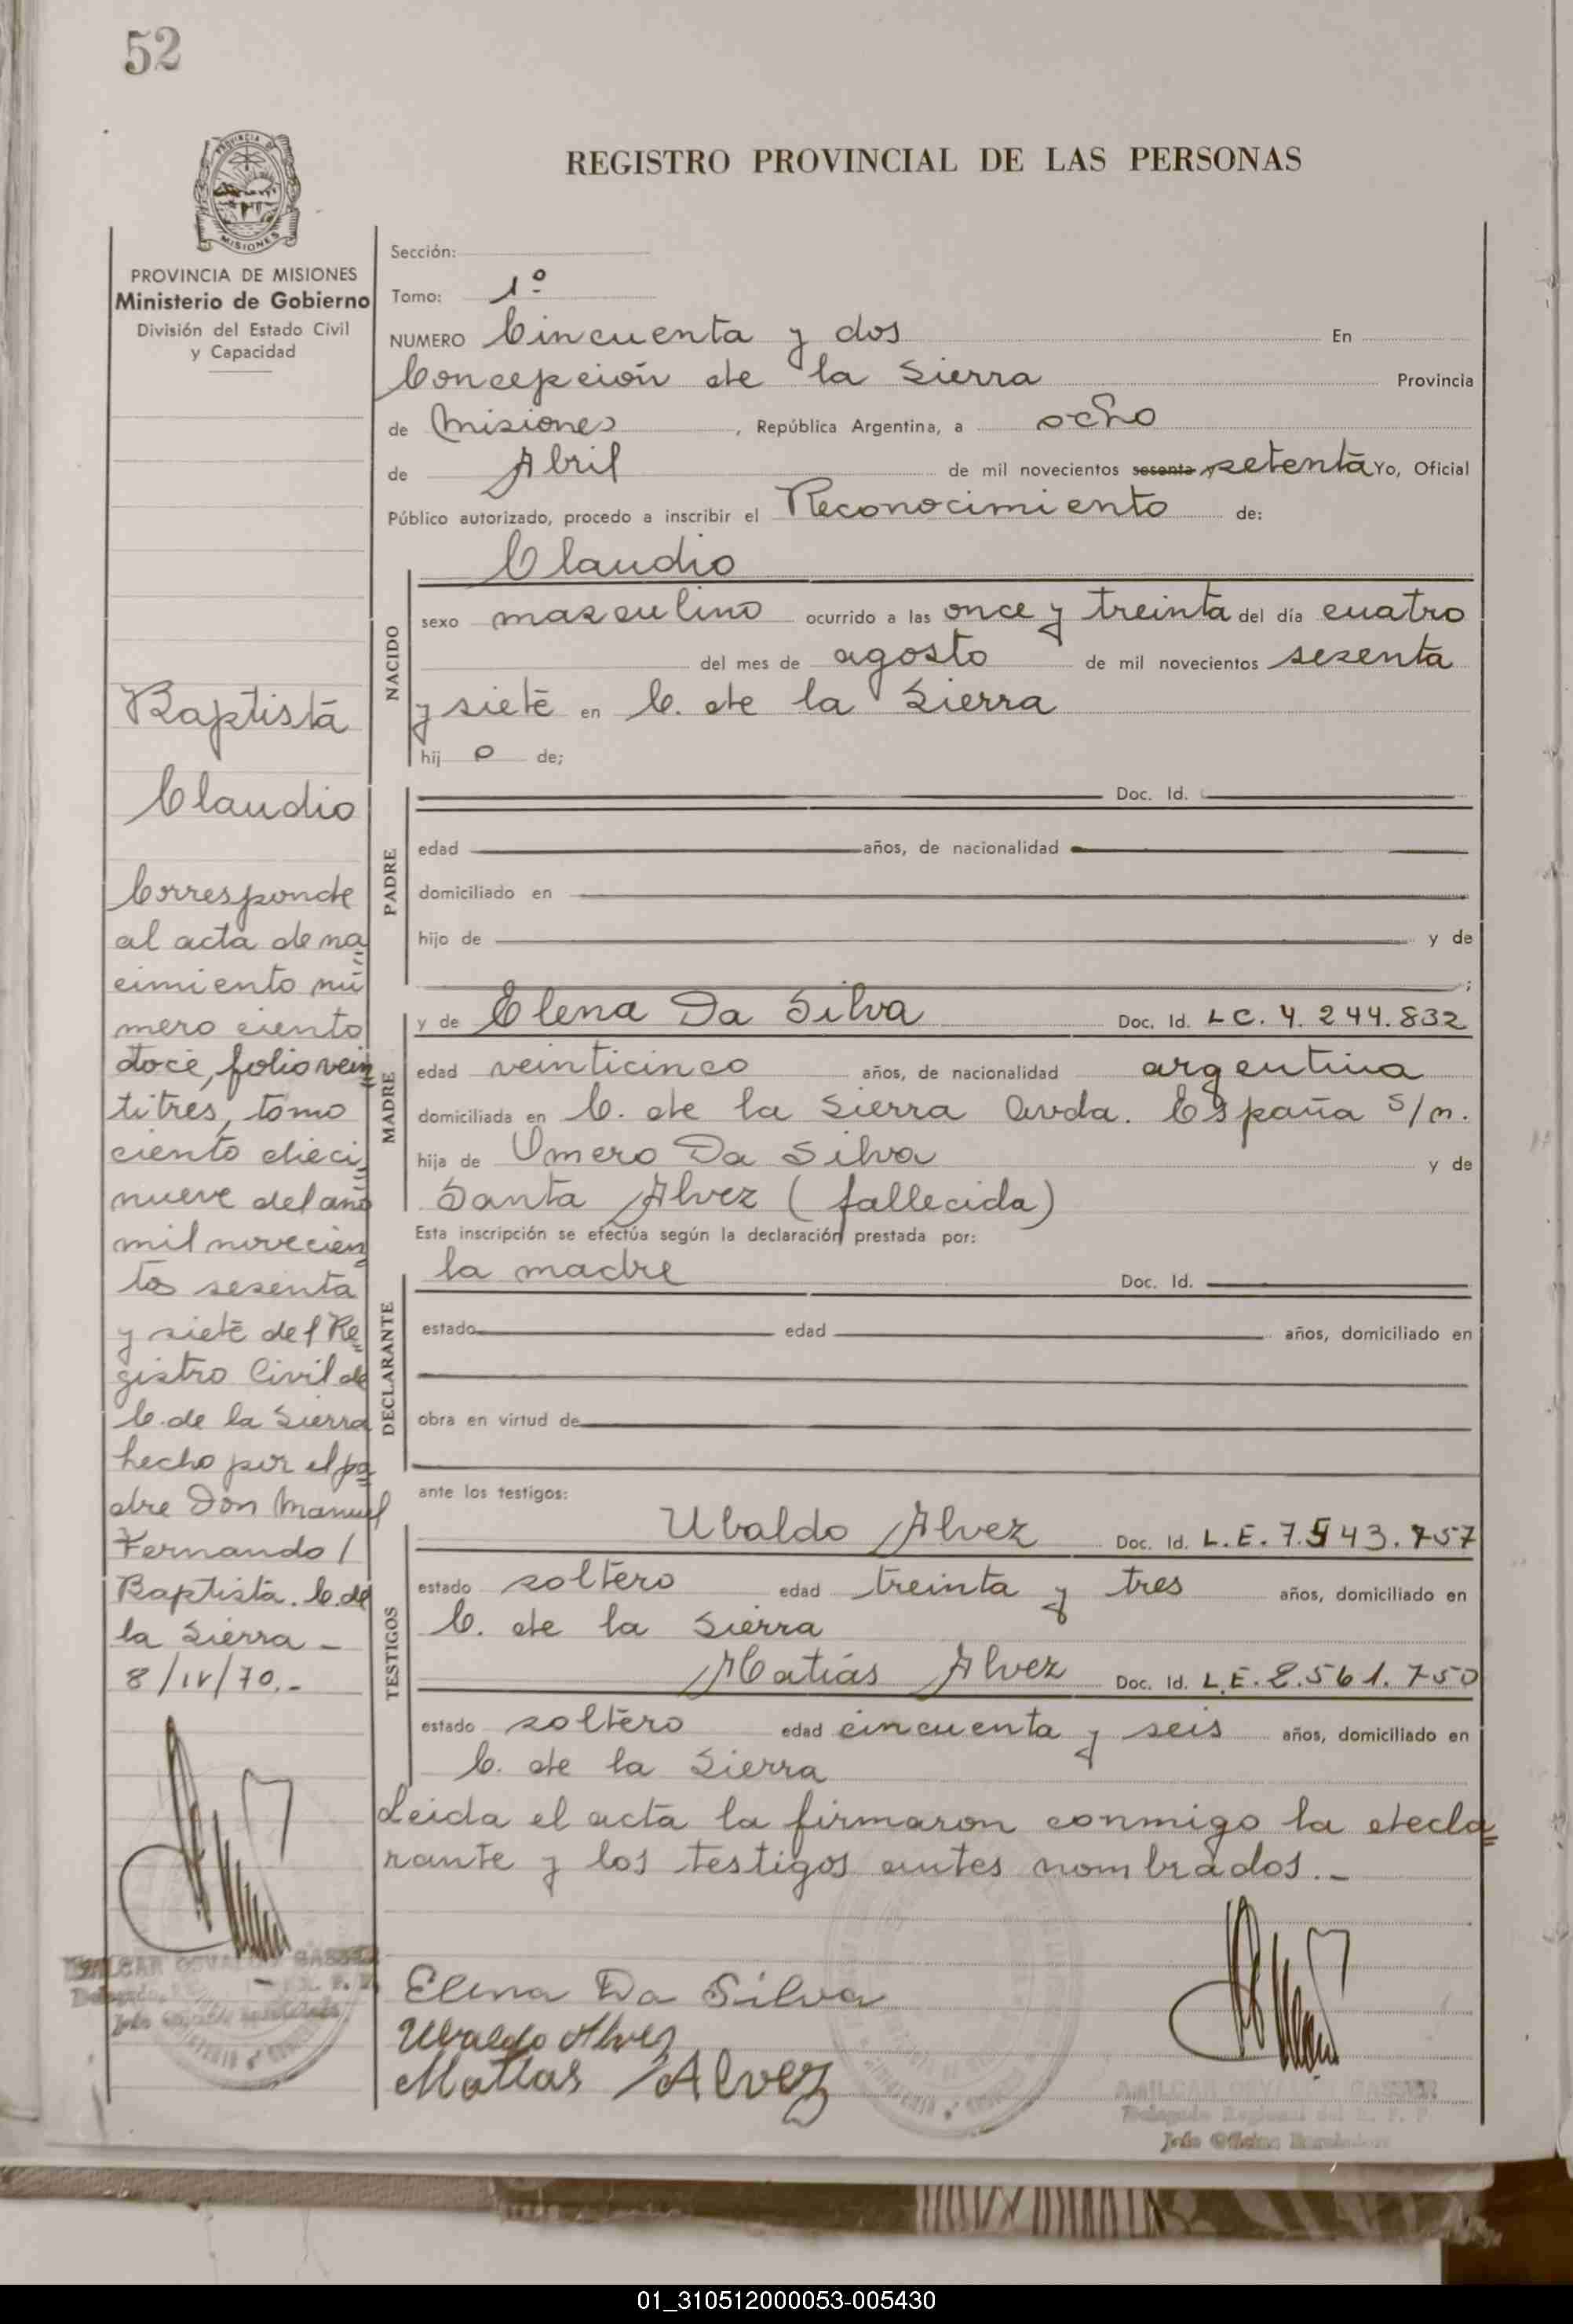 52
PROVINCIA DE
MISIONES
REGISTRO PROVINCIAL DE LAS PERSONAS
PROVINCIA DE MISIONES
Ministerio de Gobierno
División del Estado Civil
y Capacidad
Sección:
Tomo: 1º
NUMERO Cincuenta y dos En
Concepción de la Sierra Provincia
de Misiones, República Argentina, a ocho
de Abril de mil novecientos sesenta y setenta Yo, Oficial
Público autorizado, procedo a inscribir el Reconocimiento de:
Claudio
NACIDO
sexo masculino ocurrido a las once y treinta del día cuatro
del mes de agosto de mil novecientos sesenta
y siete en C. de la Sierra
hij o de;
PADRE
Doc. Id.
edad años, de nacionalidad
domiciliado en
hijo de y de
;
MADRE
y de Elena Da Silva Doc. Id. LC. 4. 244.832
edad veinticinco años, de nacionalidad argentina
domiciliada en C. de la Sierra Avda. España S/n.
hija de Omero Da Silva y de
Santa Alvez (fallecida)
Esta inscripción se efectúa según la declaración prestada por:
DECLARANTE
la madre Doc. Id.
estado edad años, domiciliado en
obra en virtud de
ante los testigos:
TESTIGOS
Ubaldo Alvez Doc. Id. L.E. 7.543.757
estado soltero edad treinta y tres años, domiciliado en
C. de la Sierra
Matías Alvez Doc. Id. L.E. 2.561.750
estado soltero edad cincuenta y seis años, domiciliado en
C. de la Sierra
Leida el acta la firmaron conmigo la decla=
rante y los testigos antes nombrados.-
Elena Da Silva
Ubaldo Alvez
Matias Alvez
AMILCAR OSVALDO GASSER
Delegado Regional del R. P. P.
Jefe Oficina
Baptista
Claudio
Corresponde
al acta de na=
cimiento nú=
mero ciento
doce, folio vein=
titres, tomo
ciento dieci=
nueve del año
mil novecien=
tos sesenta
y siete del Re=
gistro Civil de
C. de la Sierra
hecho por el pa=
dre Don Manuel
Fernando /
Baptista. C. de
la Sierra -
8/IV/70.-
AMILCAR OSVALDO GASSER
01_310512000053-005430